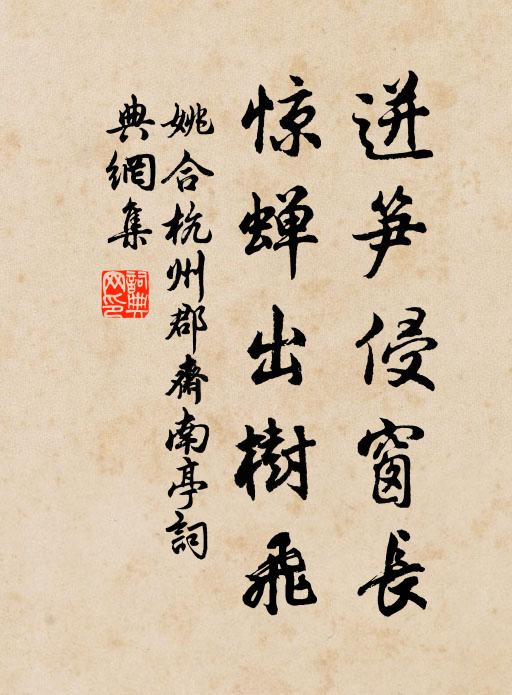 迸笋侵窗長
惊蝉出樹飛
姚合杭州郡齋南亭詞
典網集
詞典网印